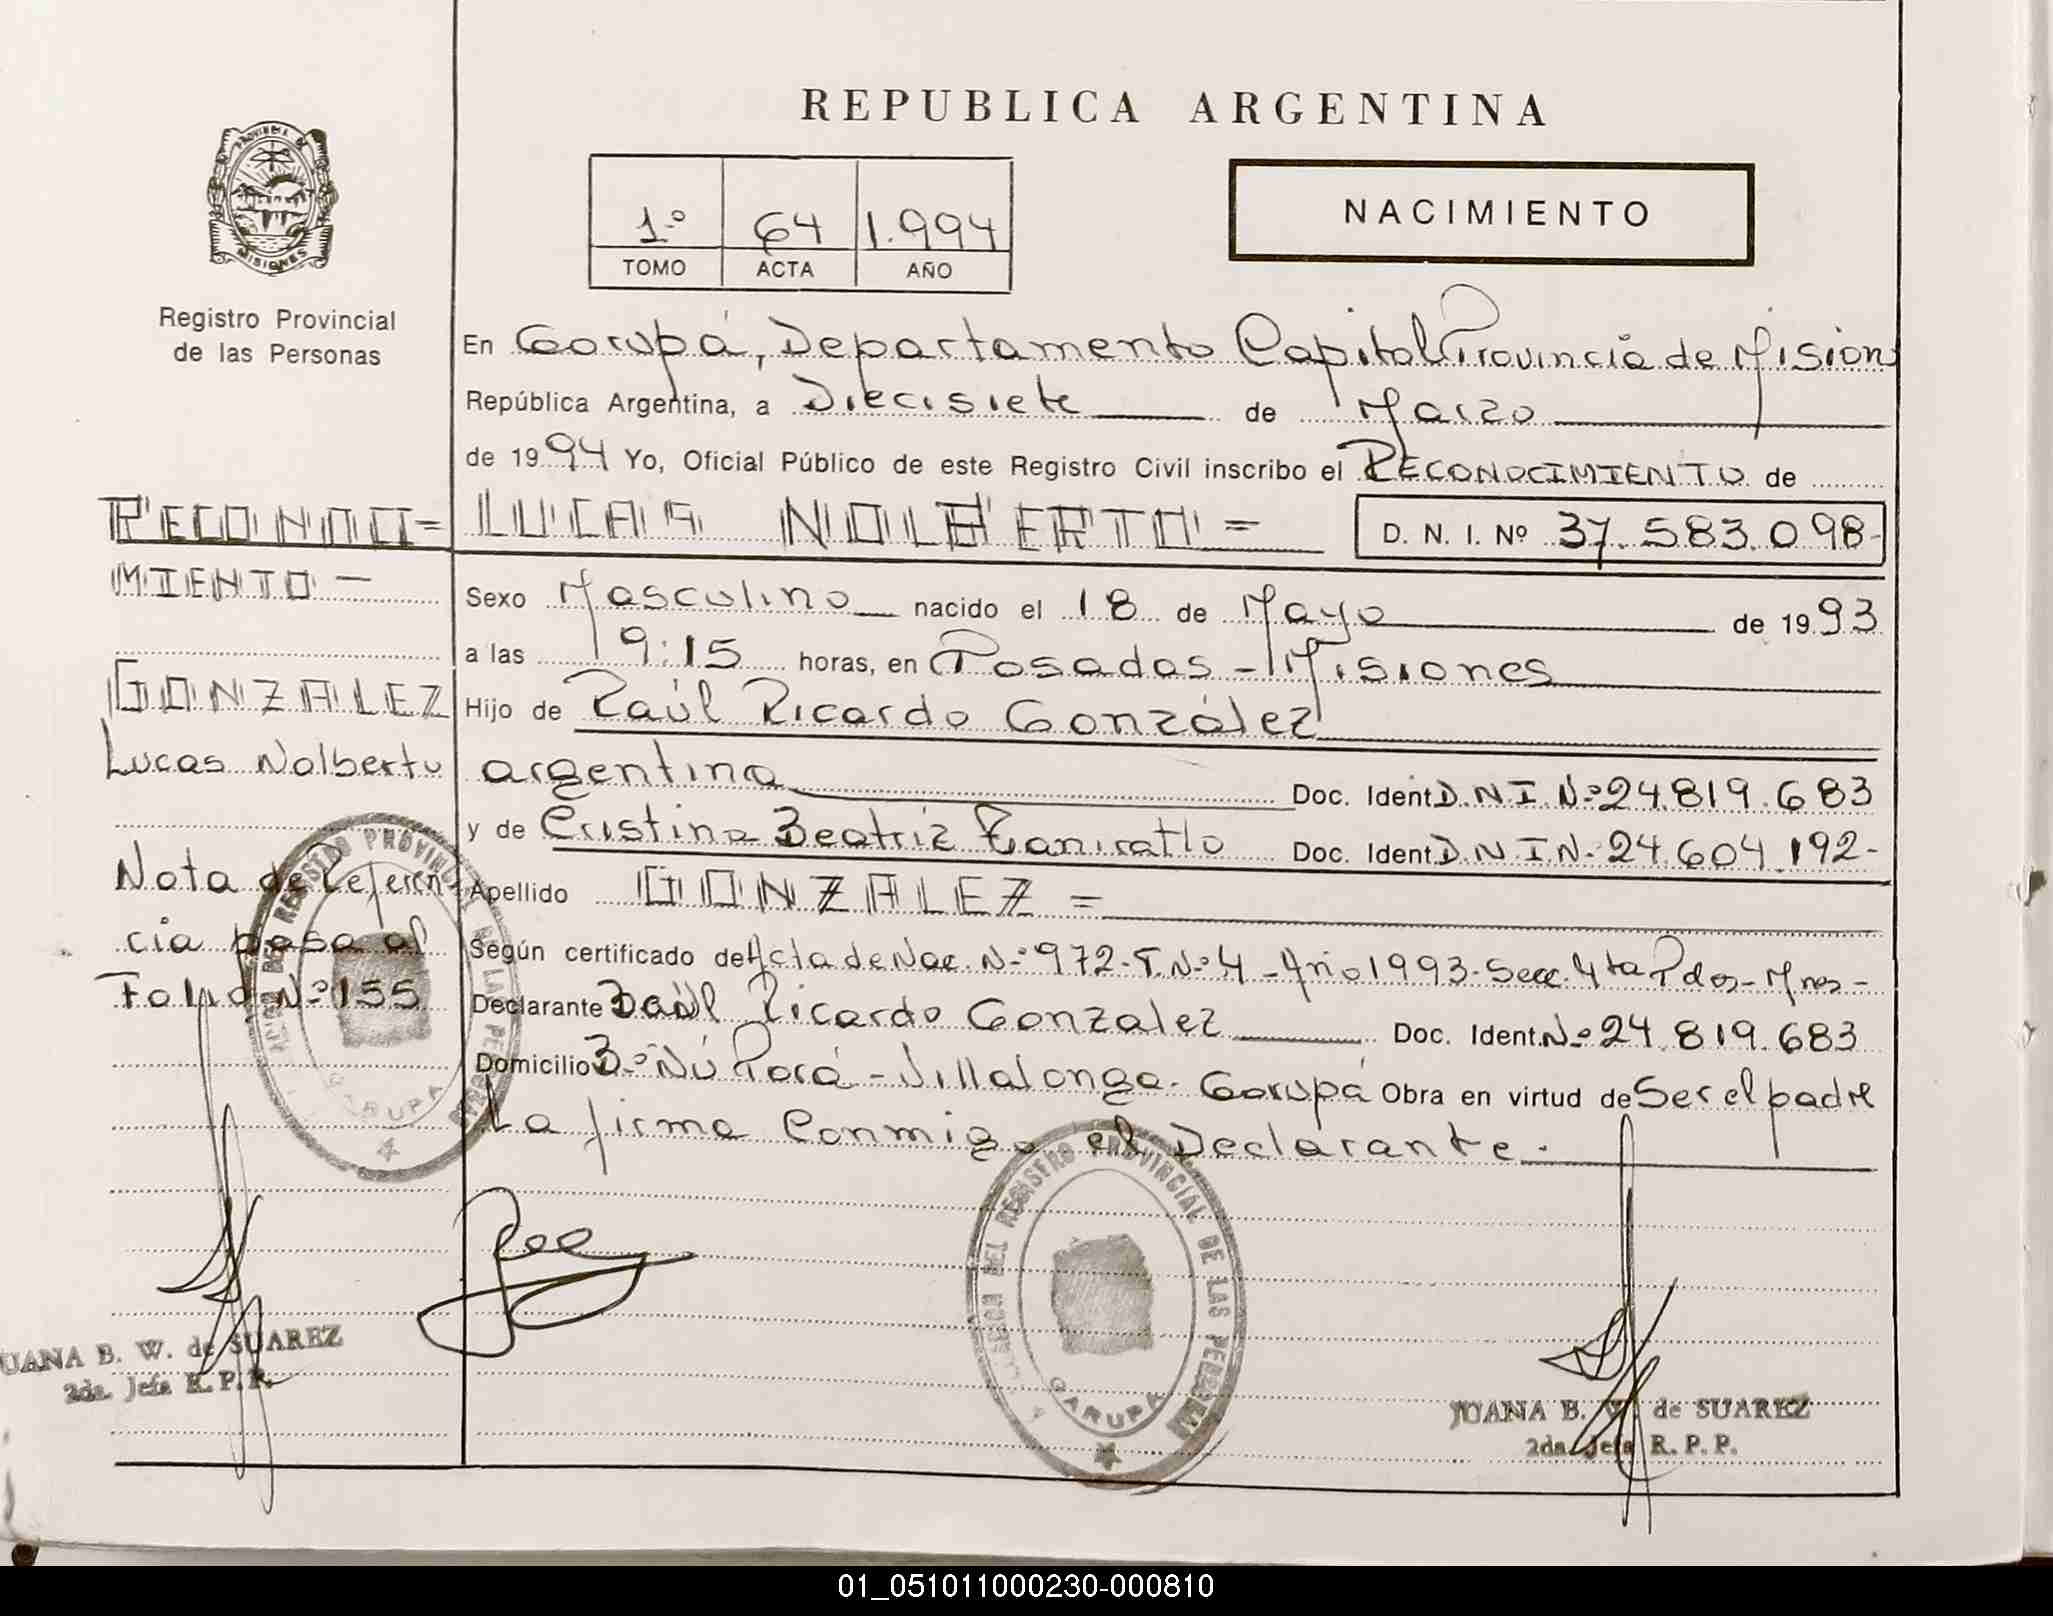 REPUBLICA ARGENTINA
PROVINCIA DE
MISIONES
1º 64 1.994
TOMO ACTA AÑO
NACIMIENTO
Registro Provincial
de las Personas
En Garupá, Departamento Capital Provincia de Mision
República Argentina, a Diecisiete de Marzo
de 1994 Yo, Oficial Público de este Registro Civil inscribo el RECONOCIMIENTO de
LUCAS NOLBERTO =
D. N. I. Nº 37.583.098-
Sexo Masculino nacido el 18 de Mayo de 1993
a las 19:15 horas, en Posadas - Misiones
Hijo de Raúl Ricardo González
argentina Doc. Ident D.N.I.Nº 24.819.683
y de Cristina Beatriz Doc. Ident D.N.I.N. 24.604.192-
Apellido GONZALEZ =
Según certificado de Acta de Nac. Nº 972-T.Nº 4-Año 1993-Secc. 4ta Pdas-Mnes-
Declarante Raúl Ricardo Gonzalez Doc. Ident. Nº 24.819.683
Domicilio Bº Ñú Porá - Villalonga - Garupá Obra en virtud de Ser el padre
La firma Conmigo el Declarante.-
RECONOCI=
MIENTO -
GONZALEZ
Lucas Nolberto
Nota de Referen
cia pasa al
Folio Nº 155
REGISTRO PROVINCIAL DE LAS PERSONAS
GARUPA
JUANA B. W. de SUAREZ
2da. Jefa R. P. P.
DEL REGISTRO PROVINCIAL DE LAS PERSONAS
GARUPA
JUANA B. W. de SUAREZ
2da. Jefa R. P. P.
01_051011000230-000810